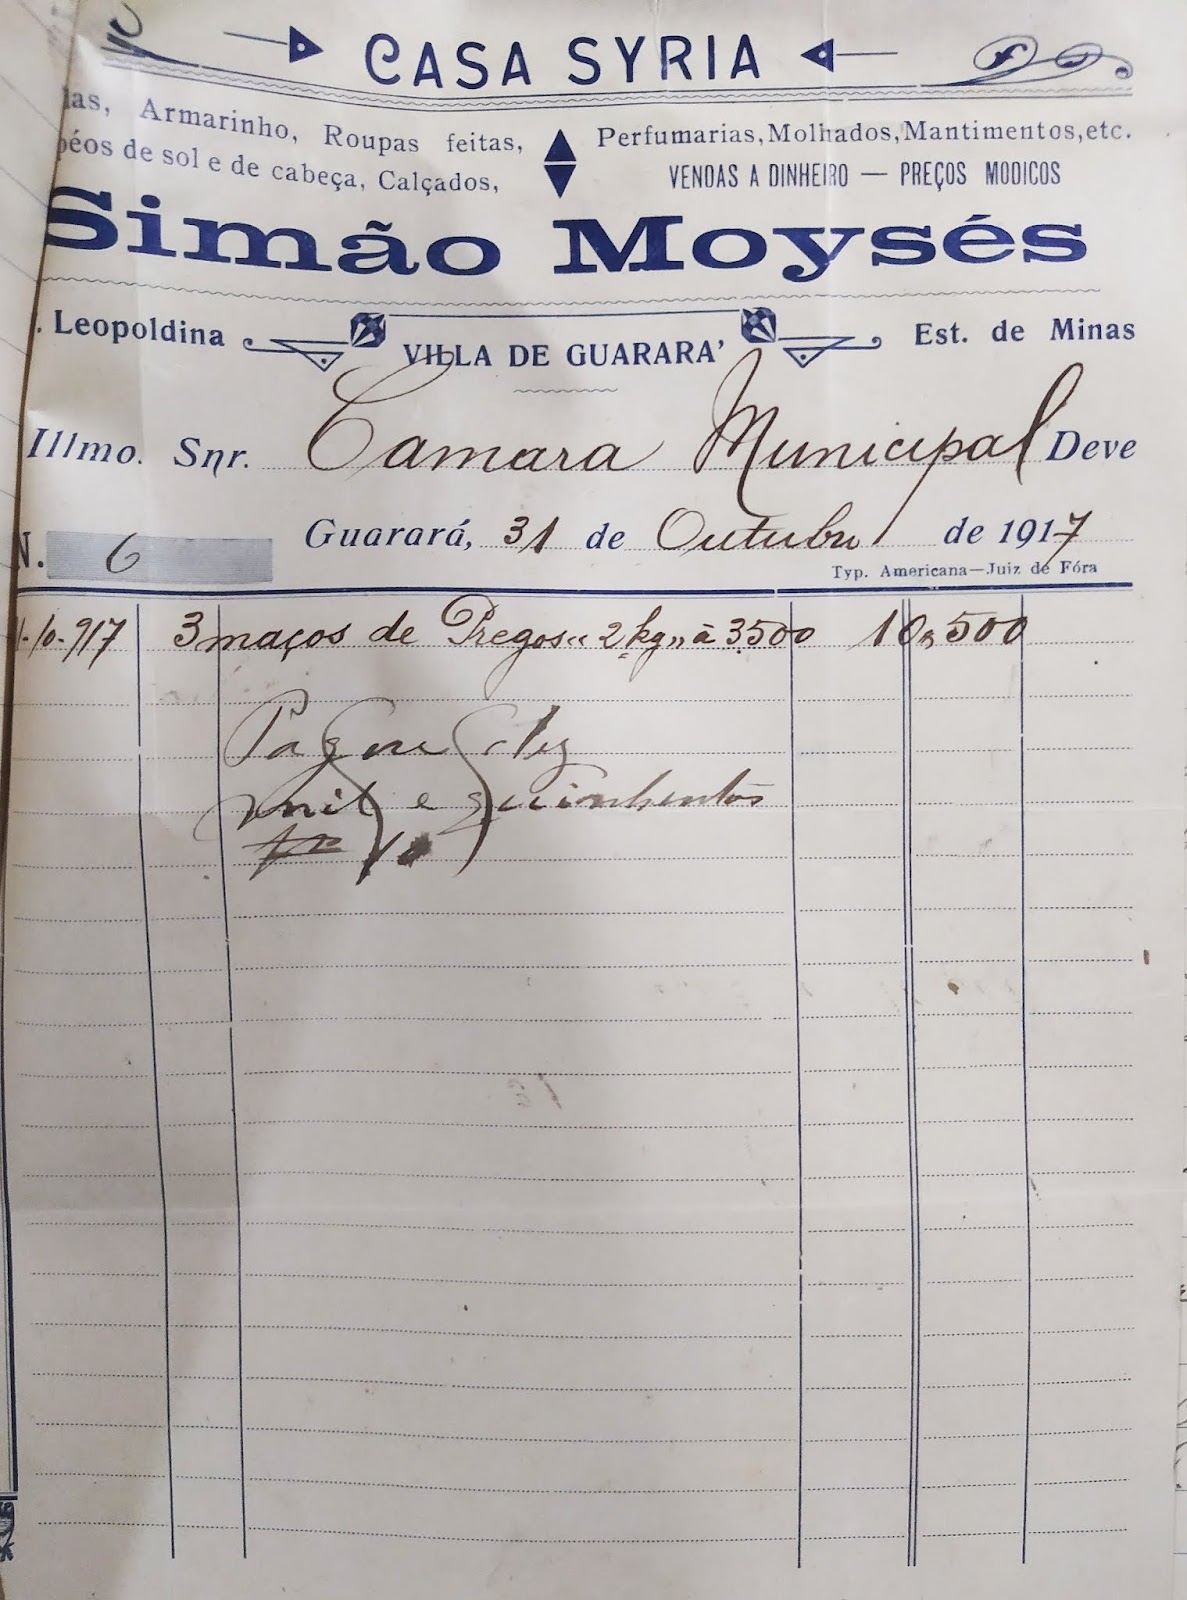 CASA SYRIA
das, Armarinho, Roupas feitas,
péos de sol e de cabeça, Calçados,
Perfumarias, Molhados, Mantimentos, etc.
VENDAS A DINHEIRO — PREÇOS MODICOS
Simão Moysés
. Leopoldina
VILLA DE GUARARA'
Est. de Minas
Illmo. Snr. Camara Municipal Deve
N. 6
Guarará, 31 de Outubro de 1917
Typ. Americana—Juiz de Fóra
1-10-917 3 maços de Pregos "2 kg" à 3.500 10$500
Pague dez
mil e quinhentos